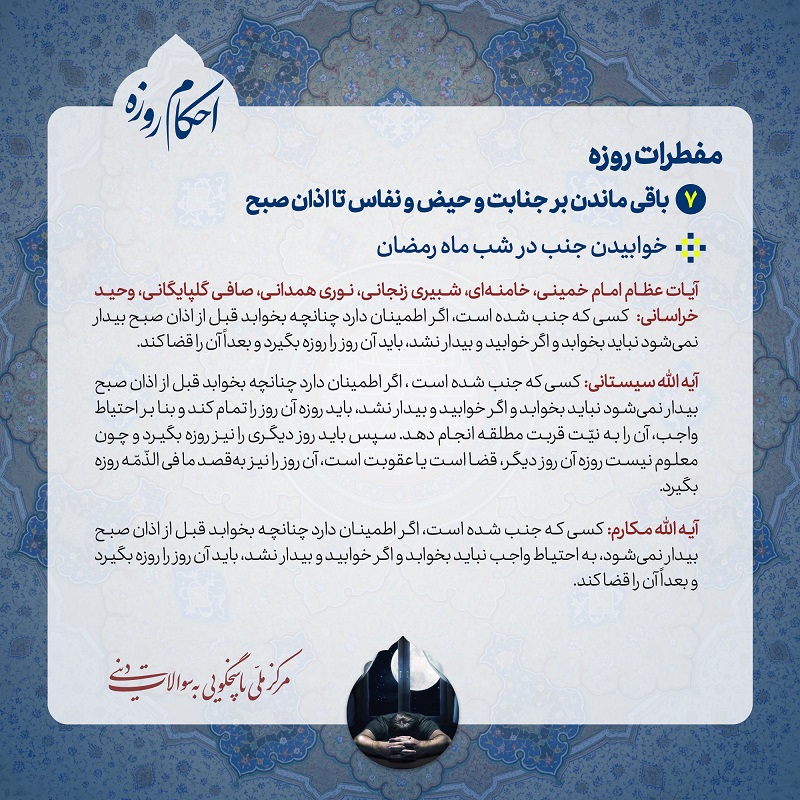 احکام روزه
مفطرات روزه
۷ باقی ماندن بر جنابت و حیض و نفاس تا اذان صبح
خوابیدن جنب در شب ماه رمضان
آیات عظام امام خمینی، خامنه‌ای، شبیری زنجانی، نوری همدانی، صافی گلپایگانی، وحید
خراسانی: کسی که جنب شده است، اگر اطمینان دارد چنانچه بخوابد قبل از اذان صبح بیدار
نمی‌شود نباید بخوابد و اگر خوابید و بیدار نشد، باید آن روز را روزه بگیرد و بعداً آن را قضا کند.
آیه الله سیستانی: کسی که جنب شده است ، اگر اطمینان دارد چنانچه بخوابد قبل از اذان صبح
بیدار نمی‌شود نباید بخوابد و اگر خوابید و بیدار نشد، باید روزه آن روز را تمام کند و بنا بر احتیاط
واجب، آن را به نیّت قربت مطلقه انجام دهد. سپس باید روز دیگری را نیز روزه بگیرد و چون
معلوم نیست روزه آن روز دیگر، قضا است یا عقوبت است، آن روز را نیز به‌قصد ما فی الذّمّه روزه
بگیرد.
آیه الله مکارم: کسی که جنب شده است، اگر اطمینان دارد چنانچه بخوابد قبل از اذان صبح
بیدار نمی‌شود، به احتیاط واجب نباید بخوابد و اگر خوابید و بیدار نشد، باید آن روز را روزه بگیرد
و بعداً آن را قضا کند.
مرکز ملّی پاسخگویی به سوالات دینی